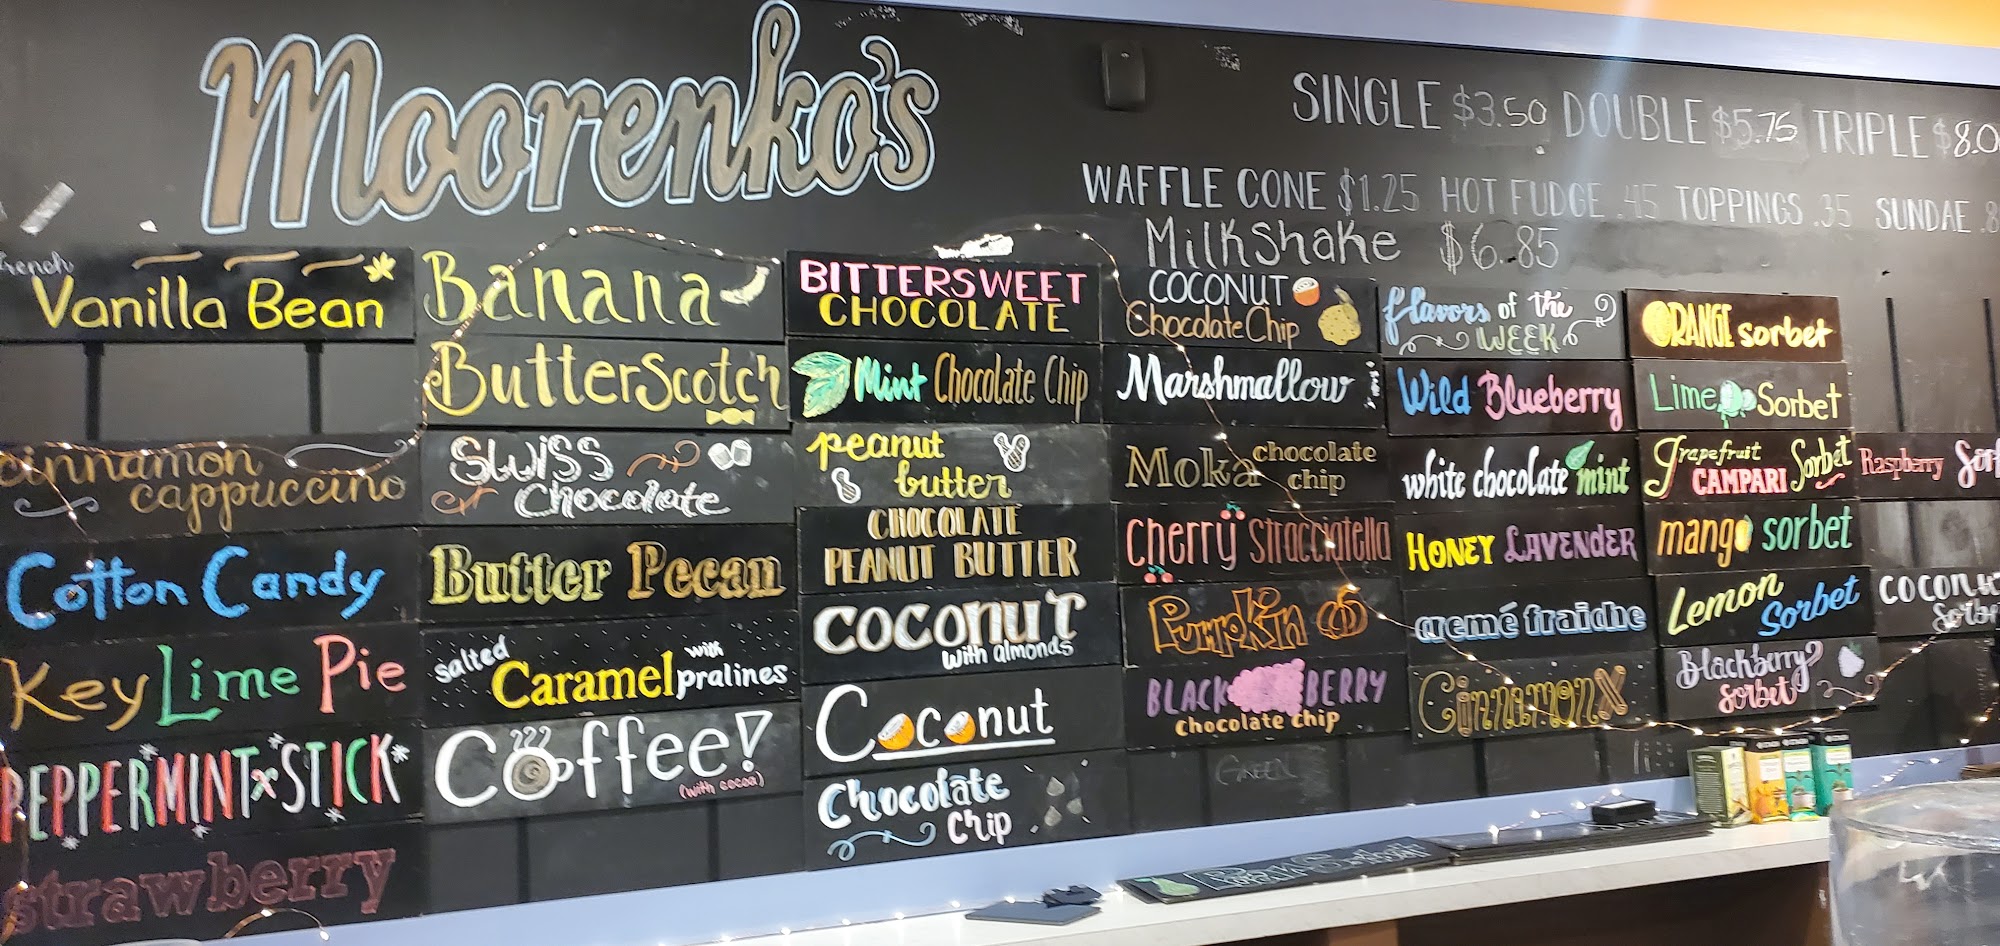 Moorenko's
SINGLE $3.50 DOUBLE $5.75 TRIPLE $8.0
WAFFLE CONE $1.25 HOT FUDGE .45 TOPPINGS .35 SUNDAE .8
Milkshake $6.85
French
Vanilla Bean
cinnamon
cappuccino
Cotton Candy
Key Lime Pie
PEPPERMINT STICK
strawberry
Banana
ButterScotch
SWISS
Chocolate
Butter Pecan
salted
Caramel with
pralines
Coffee!
(with cocoa)
BITTERSWEET
CHOCOLATE
Mint Chocolate Chip
peanut
butter
CHOCOLATE
PEANUT BUTTER
COCONUT
with almonds
Coconut
Chocolate
Chip
COCONUT
Chocolate Chip
Marshmallow
Moka chocolate
chip
Cherry Stracciatella
Pumpkin
BLACK BERRY
chocolate chip
GREEN
flavors of the
WEEK
Wild Blueberry
white chocolate mint
HONEY LAVENDER
cremé fraiche
Cinnamon
ORANGE sorbet
Lime Sorbet
grapefruit
CAMPARI Sorbet
mango sorbet
Lemon
Sorbet
Blackberry
sorbet
Raspberry Sor
COCONUT
Sorb